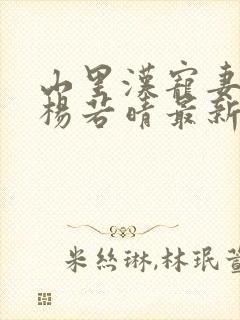 山里漢寵妻
楊若晴最新
米絲琳,林珉萱